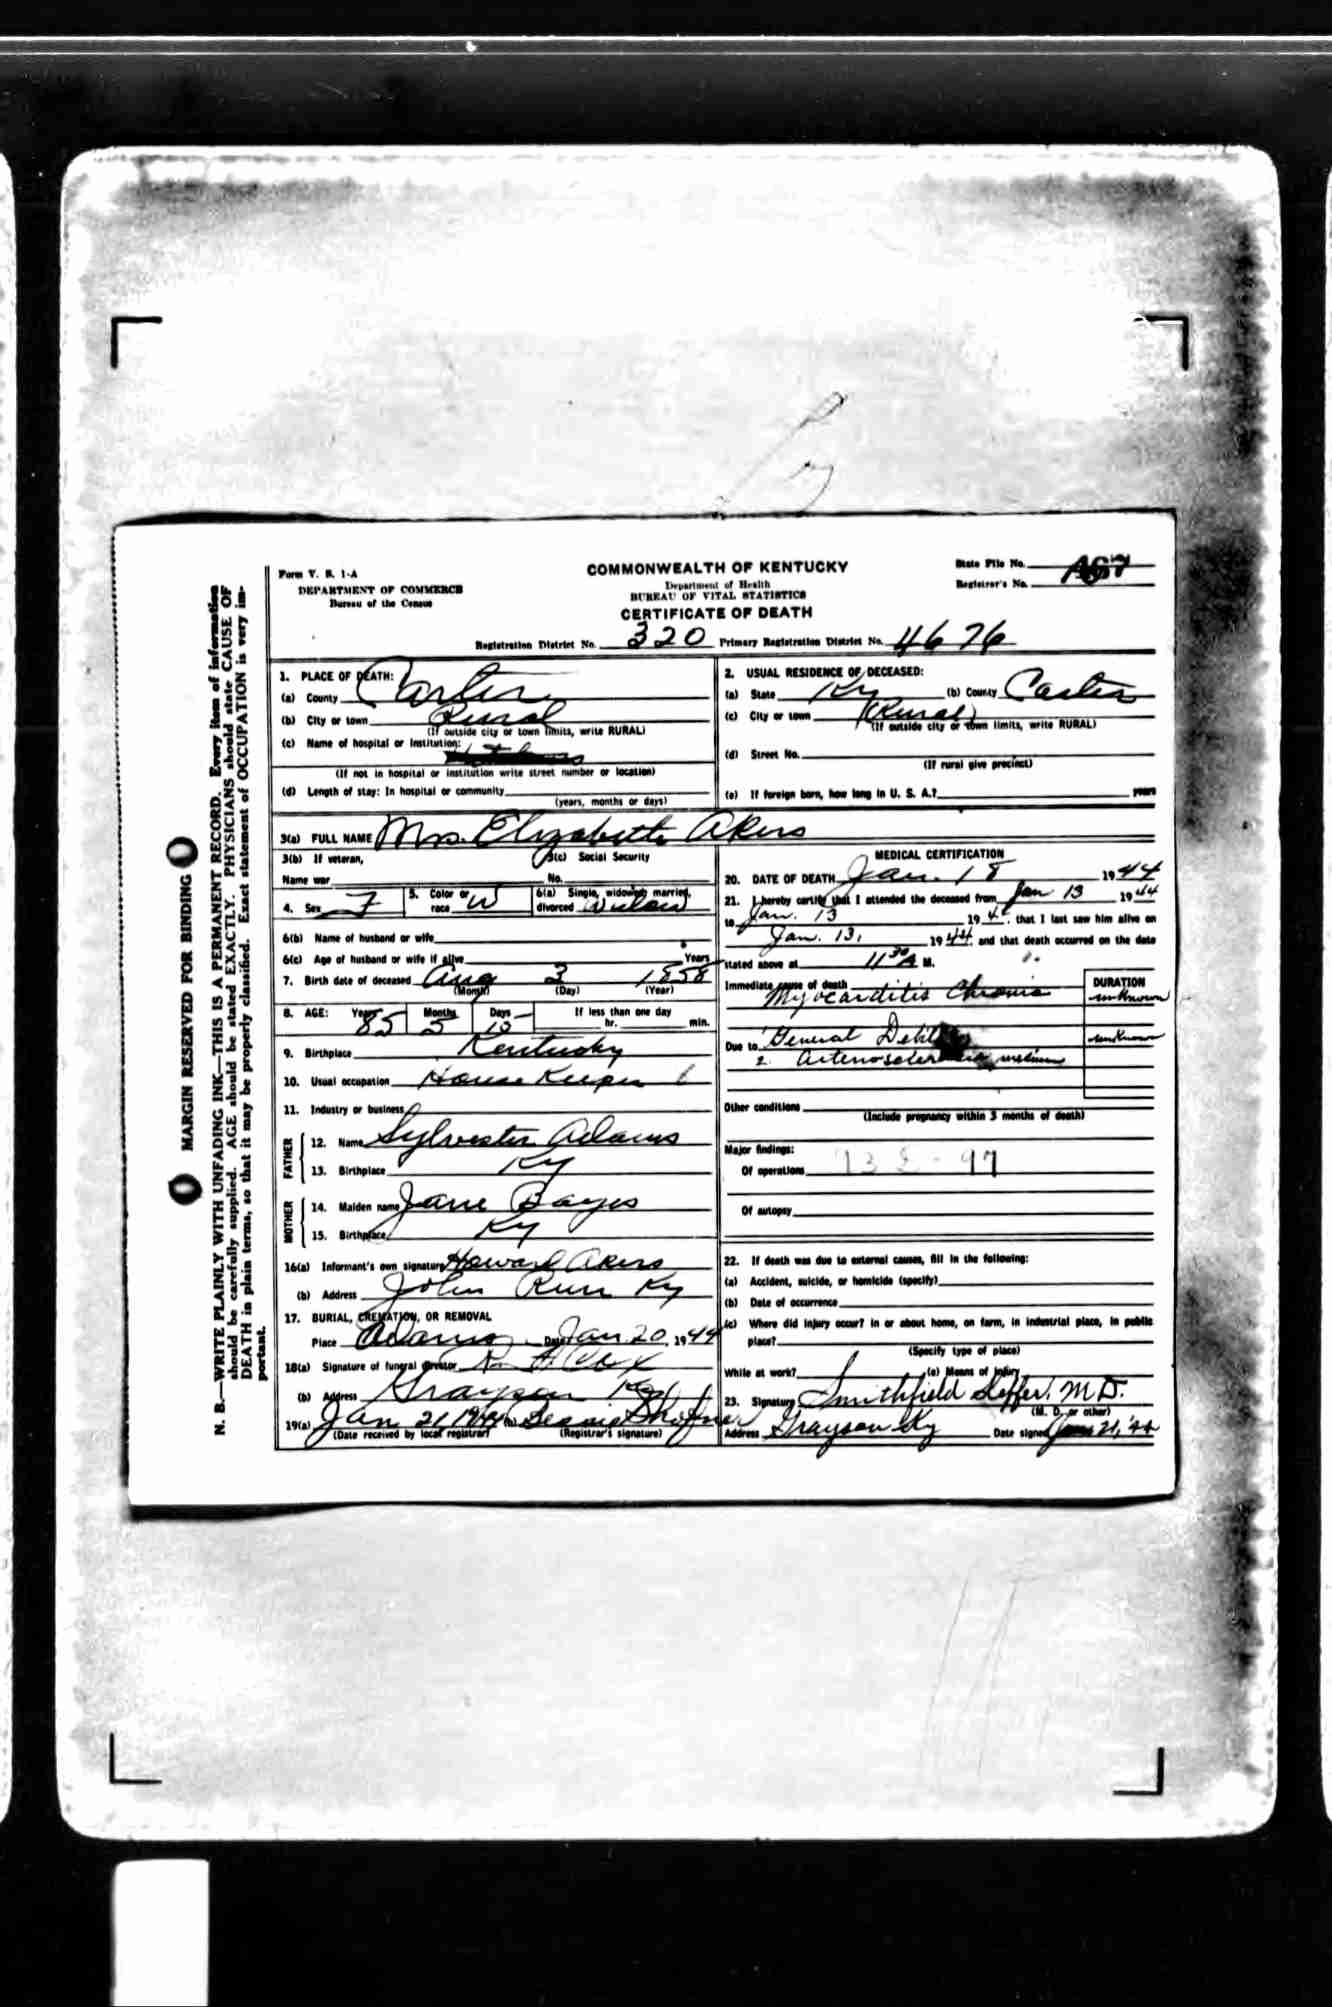 Form V. S. 1-A
DEPARTMENT OF COMMERCE
Bureau of the Census
COMMONWEALTH OF KENTUCKY
Department of Health
BUREAU OF VITAL STATISTICS
CERTIFICATE OF DEATH
State File No.
Registrar's No.
Registration District No. 320 Primary Registration District No. 4676
MARGIN RESERVED FOR BINDING
N. B.—WRITE PLAINLY WITH UNFADING INK—THIS IS A PERMANENT RECORD. Every item of information
should be carefully supplied. AGE should be stated EXACTLY. PHYSICIANS should state CAUSE OF
DEATH in plain terms, so that it may be properly classified. Exact statement of OCCUPATION is very im-
portant.
1. PLACE OF DEATH:
(a) County Carter
(b) City or town Rural
(If outside city or town limits, write RURAL)
(c) Name of hospital or institution:
(If not in hospital or institution write street number or location)
(d) Length of stay: In hospital or community
(years, months or days)
2. USUAL RESIDENCE OF DECEASED:
(a) State Ky (b) County Carter
(c) City or town (Rural)
(If outside city or town limits, write RURAL)
(d) Street No.
(If rural give precinct)
(e) If foreign born, how long in U. S. A.? years
3(a) FULL NAME Mrs. Elizabeth Akers
3(b) If veteran, 3(c) Social Security
Name war No.
4. Sex F 5. Color or race W 6(a) Single, widowed, married, divorced Widow
6(b) Name of husband or wife
6(c) Age of husband or wife if alive Years
7. Birth date of deceased Aug 3 1858
(Month) (Day) (Year)
8. AGE: Years 85 Months 5 Days 15 If less than one day
hr. min.
9. Birthplace Kentucky
10. Usual occupation House Keeper
11. Industry or business
FATHER
12. Name Sylvester Adams
13. Birthplace Ky
MOTHER
14. Maiden name Jane Bayes
15. Birthplace Ky
16(a) Informant's own signature Howard Akers
(b) Address John Run Ky
17. BURIAL, CREMATION, OR REMOVAL
Place Adams Date Jan 20, 1944
18(a) Signature of funeral director R. H Cox
(b) Address Grayson Ky
19(a) Jan 21 1944 (b) Bessie
(Date received by local registrar) (Registrar's signature)
MEDICAL CERTIFICATION
20. DATE OF DEATH Jan. 18 1944
21. I hereby certify that I attended the deceased from Jan 13 1944
to Jan. 13 194 that I last saw him alive on
Jan. 13, 1944 and that death occurred on the date
stated above at 11 30 A M.
Immediate cause of death DURATION
Myocarditis Chronic unknown
Due to General unknown
2.
Other conditions
(Include pregnancy within 3 months of death)
Major findings:
Of operations
Of autopsy
22. If death was due to external causes, fill in the following:
(a) Accident, suicide, or homicide (specify)
(b) Date of occurrence
(c) Where did injury occur? in or about home, on farm, in industrial place, in public
place?
(Specify type of place)
While at work? (e) Means of injury
23. Signature Smithfield M.D.
(M. D. or other)
Address Grayson Ky Date signed Jan 21, '44